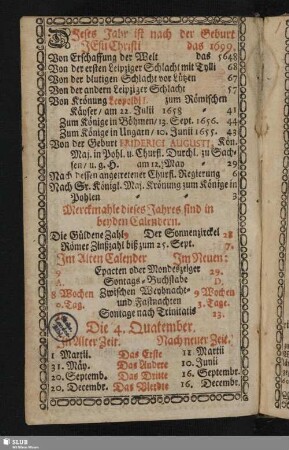 Dieses Jahr ist nach der Geburt
JEsu Christi das 1699.
Von Erschaffung der Welt das 5648
Von der ersten Leipziger Schlacht mit Tylli 68
Von der blutigen Schlacht vor Lützen 67
Von der andern Leipziger Schlacht 57
Von Krönung Leopoldi I. zum Römischen
Käyser / am 22. Julii 1658 41
Zum Könige in Böhmen / 13. Sept. 1656. 44
Zum Könige in Ungarn / 10. Junii 1655. 43
Von der Geburt FRIDERICI AUGUSTI, Kön.
Maj. in Pohl. u. Churfl. Durchl. zu Sach-
sen / u. g. H. am 12. May 29
Nach dessen angeretener Churfl. Regierung 6
Nach Sr. Königl. Maj. Krönung zum Könige in
Pohlen 3
Merckmahle dieses Jahres sind in
beyden Calendern.
Die Güldene Zahl 9 Der Sonnenzirckel 28
Römer Zinßzahl biß zum 25. Sept. 7.
Im Alten Calender Im Neuen:
9 Epacten oder Mondeszeiger 29.
A. Sontags-Buchstabe D.
8 Wochen Zwischen Weyhnacht- 9 Wochen
0. Tag. und Fastnachten 3. Tage.
Sontage nach Trinitatis 23.
Die 4. Quatember.
In Alter Zeit. Nach neuer Zeit.
1 Martii. Das Erste 11 Martii
31. Mäy. Das Andere 10. Junii
20. Septemb. Das Dritte 16. Septembr.
20. Decembr. Das Vierdte 16. Decembr.
SLUB